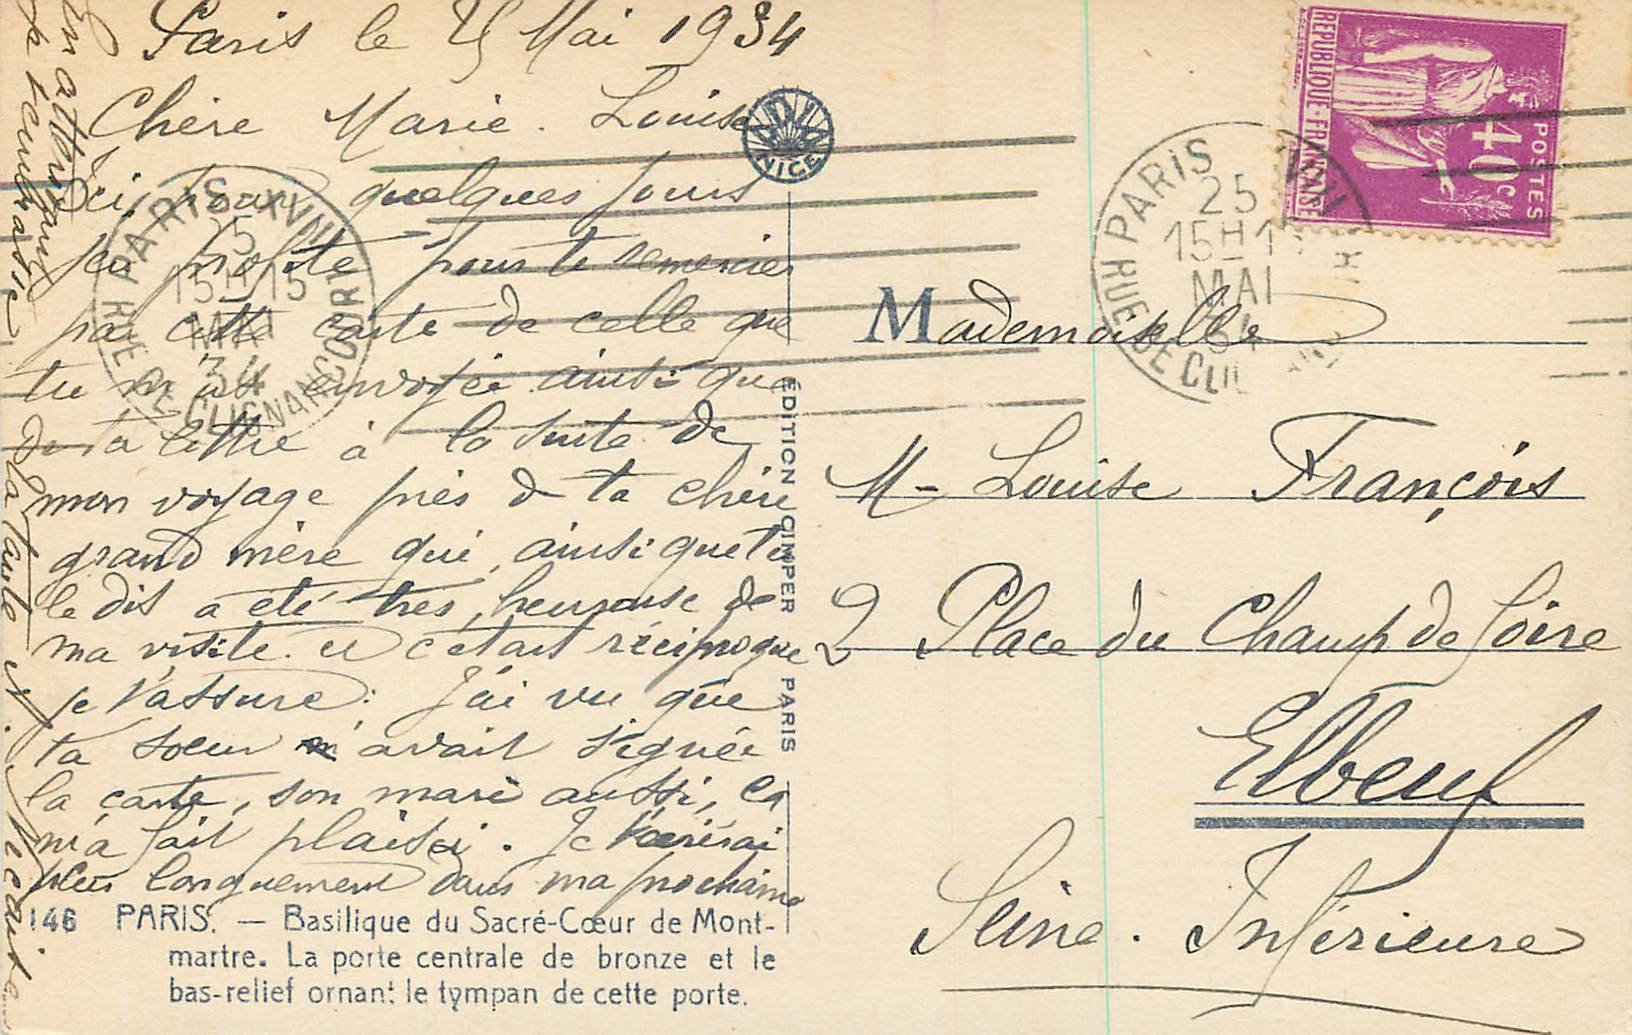 Paris le 25 Mai 1934
Chère Marie. Louise
Ici, pour quelques jours
j'en profite pour te remercier
par cette carte de celle que
tu m'as envoyée ainsi que
de ta lettre à la suite de
mon voyage près de ta chère
grand mère qui, ainsi que tu
le dis a été très, heureuse de
ma visite. et c'était réciproque
je t'assure: J'ai vu que
ta soeur avait signée
la carte, son mari aussi, ça
m'a fait plaisir. Je t'écrirai
plus longuement dans ma prochaine
En attendant
je t'embrasse
ta tante N.
146 PARIS. — Basilique du Sacré-Cœur de Mont-
martre. La porte centrale de bronze et le
bas-relief ornant le tympan de cette porte.
ADIA
NICE
ÉDITION CIMPER PARIS
PARIS XVIII
25
15H15
MAI
34
R. RUE DE CLIGNANCOURT
RÉPUBLIQUE·FRANÇAISE
POSTES
40c
PARIS XVIII
25
15H1
MAI
34
R. RUE DE CLI
Mademoiselle
M- Louise François
2 Place du Champ de foire
Elbeuf
Seine. Inférieure